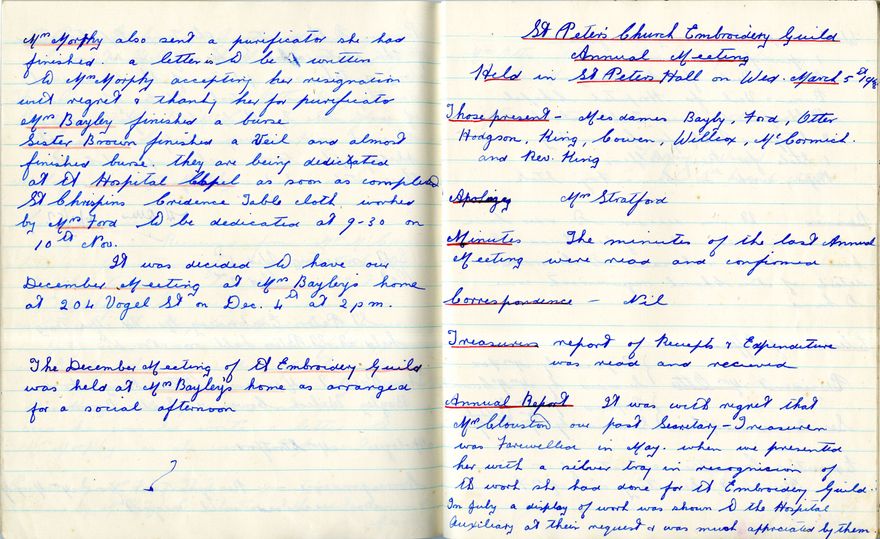 Mrs Morphy also sent a purificator she had
finished. a letter is to be written
to Mrs Morphy accepting her resignation
with regret & thanking her for purificator
Mrs Bayley finished a burse
Sister Brown finished a Veil and almost
finished burse. they are being dedicated
at the Hospital Chapel as soon as completed
St Chrispins Credence Table cloth worked
by Mrs Ford to be dedicated at 9-30 on
10th Nov.
It was decided to have our
December Meeting at Mrs Bayley's home
at 204 Vogel St on Dec. 4th at 2 pm.
The December Meeting of the Embroidery Guild
was held at Mrs Bayley's home as arranged
for a social afternoon
St Peters Church Embroidery Guild
Annual Meeting
Held in St Peters Hall on Wed. March 5th
Those present - Mesdames Bayly, Ford, Otter
Hodgson, King, Cowen, Willcox, McCormick.
and Rev. King
Apology Mrs Stratford
Minutes The minutes of the last Annual
Meeting were read and confirmed
Correspondence - Nil
Treasurers report of Receipts & Expenditure
was read and recieved
Annual Report It was with regret that
Mrs Clouston our past Secretary-Treasurer
was Farewelled in May. when we presented
her with a silver tray in recognision of
the work she had done for the Embroidery Guild.
In July a display of work was shown to the Hospital
Auxiliary at their request & was much appreciated by them.